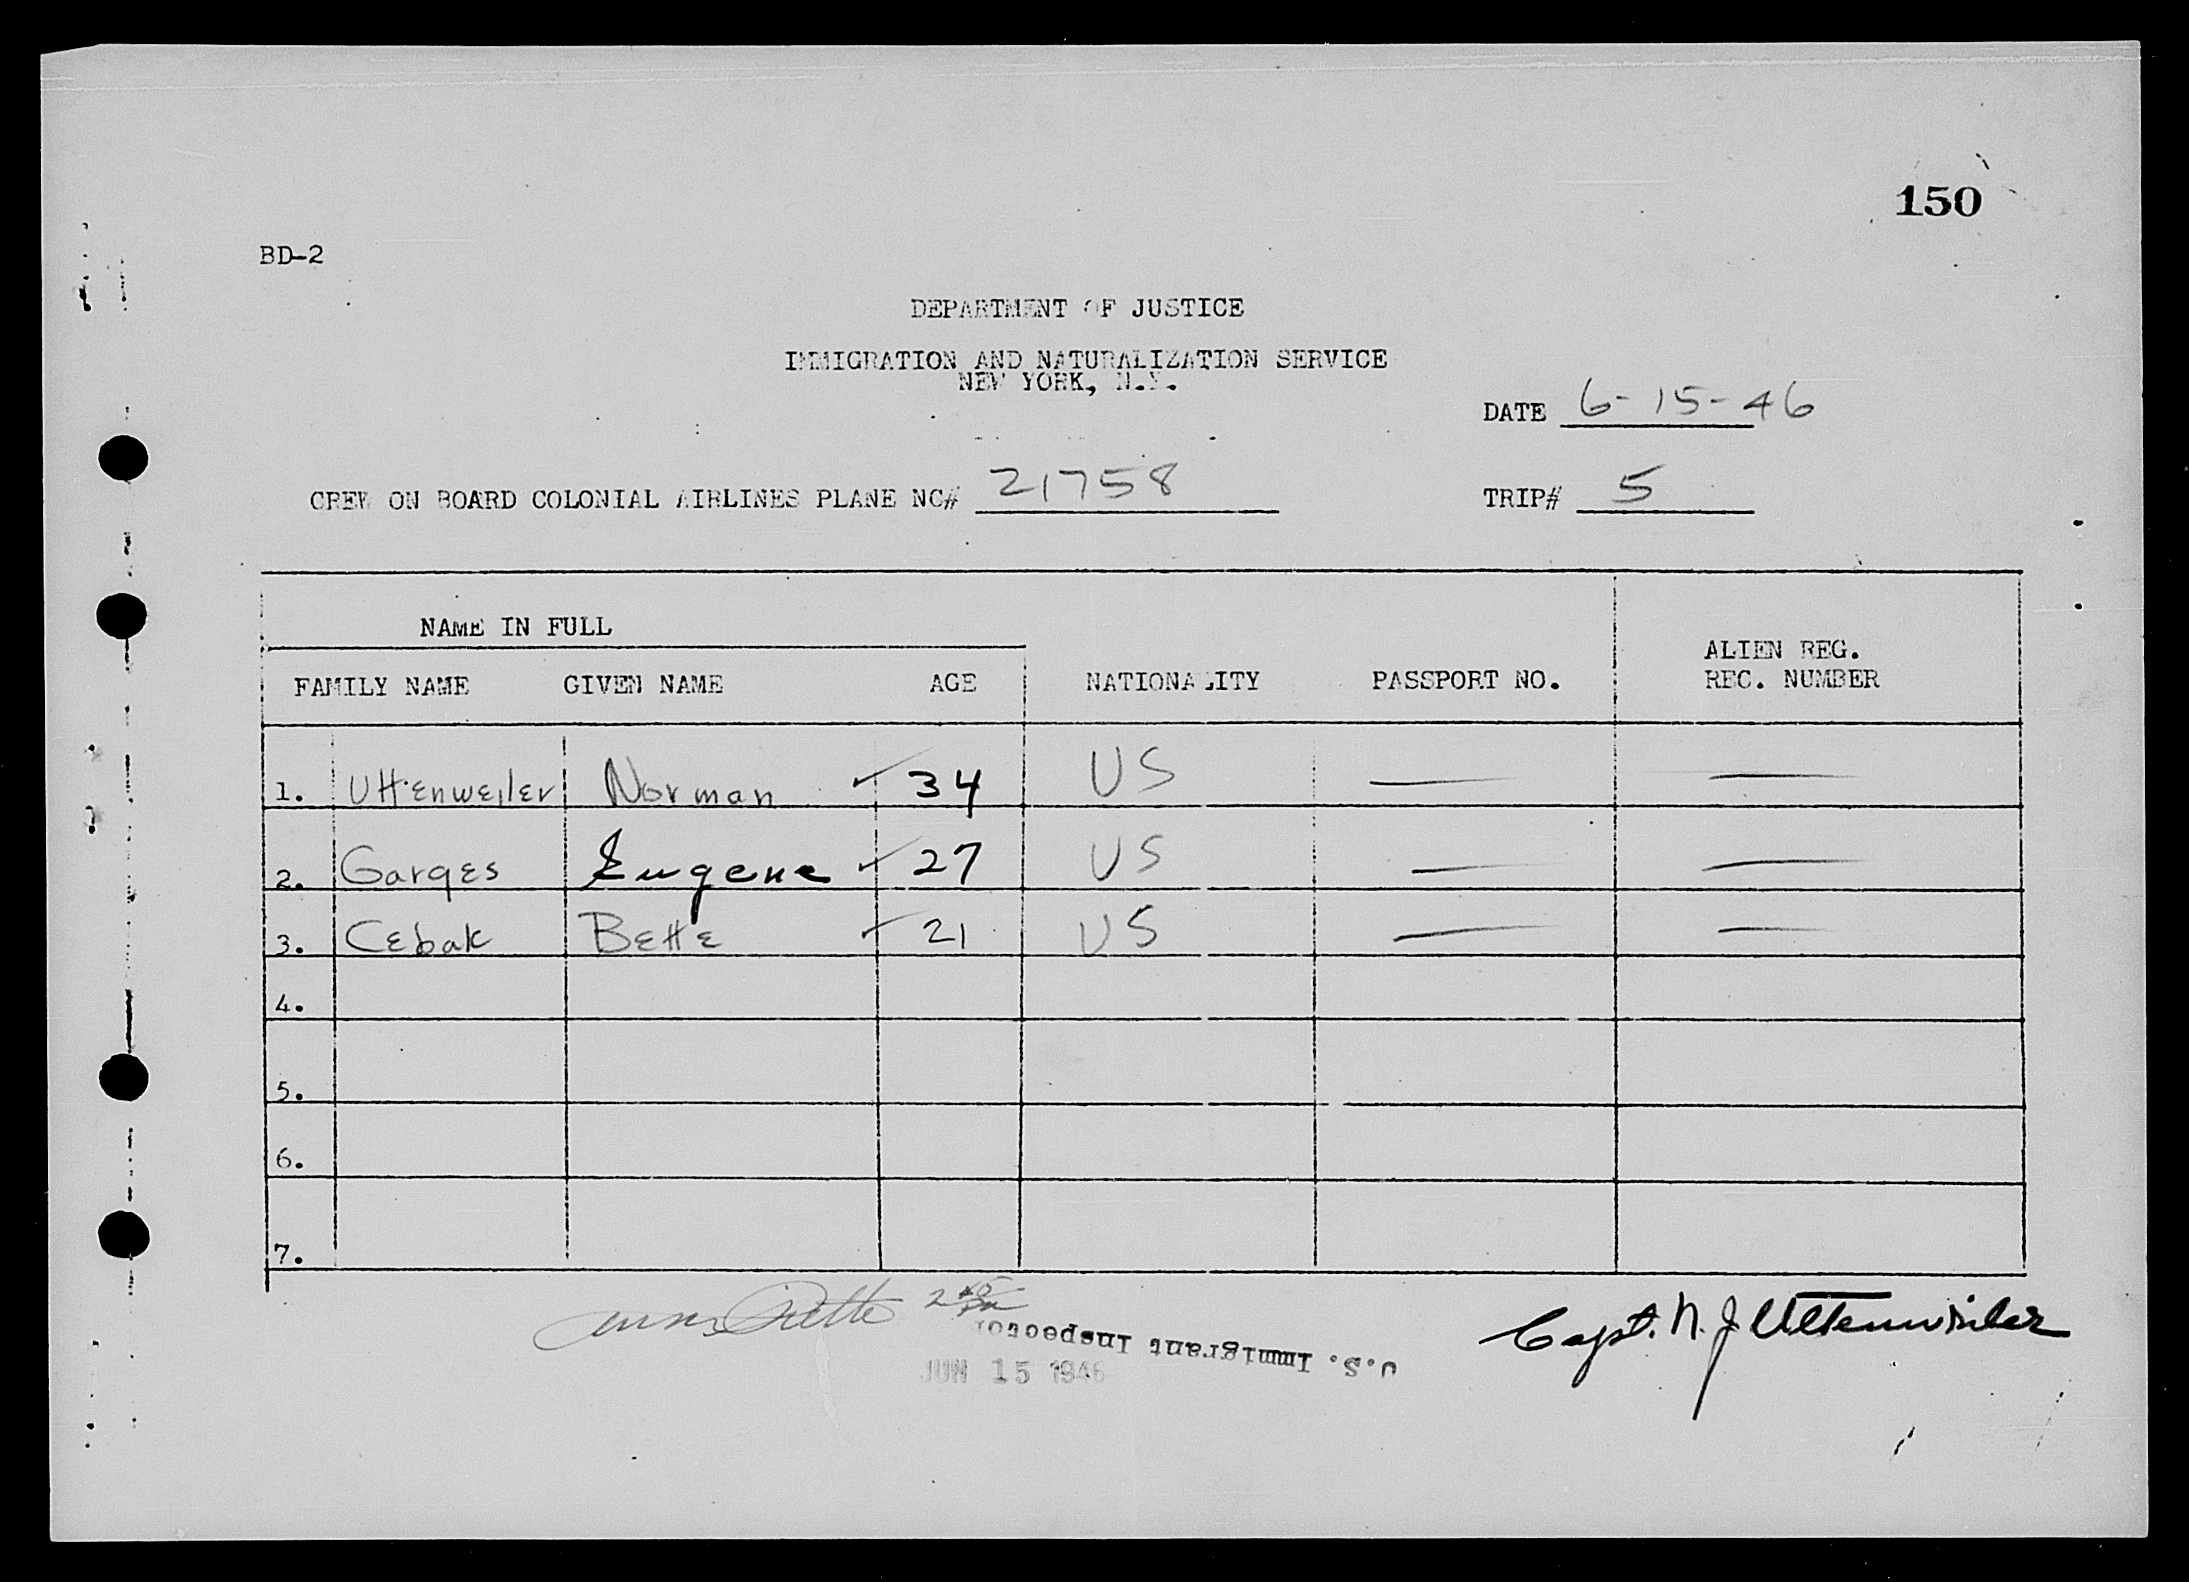 150
BD-2
DEPARTMENT OF JUSTICE
IMMIGRATION AND NATURALIZATION SERVICE
NEW YORK, N.Y.
DATE 6-15-46
CREW ON BOARD COLONIAL AIRLINES PLANE NC# 21758 TRIP# 5
NAME IN FULL
FAMILY NAME GIVEN NAME AGE NATIONALITY PASSPORT NO. ALIEN REG. REC. NUMBER
1. Uttenweiler Norman ✓ 34 US — —
2. Garges Eugene ✓ 27 US — —
3. Cebak Bette ✓ 21 US — —
4.
5.
6.
7.
Capt. N. J. Uttenweiler
U.S. Immigrant Inspector
JUN 15 1946